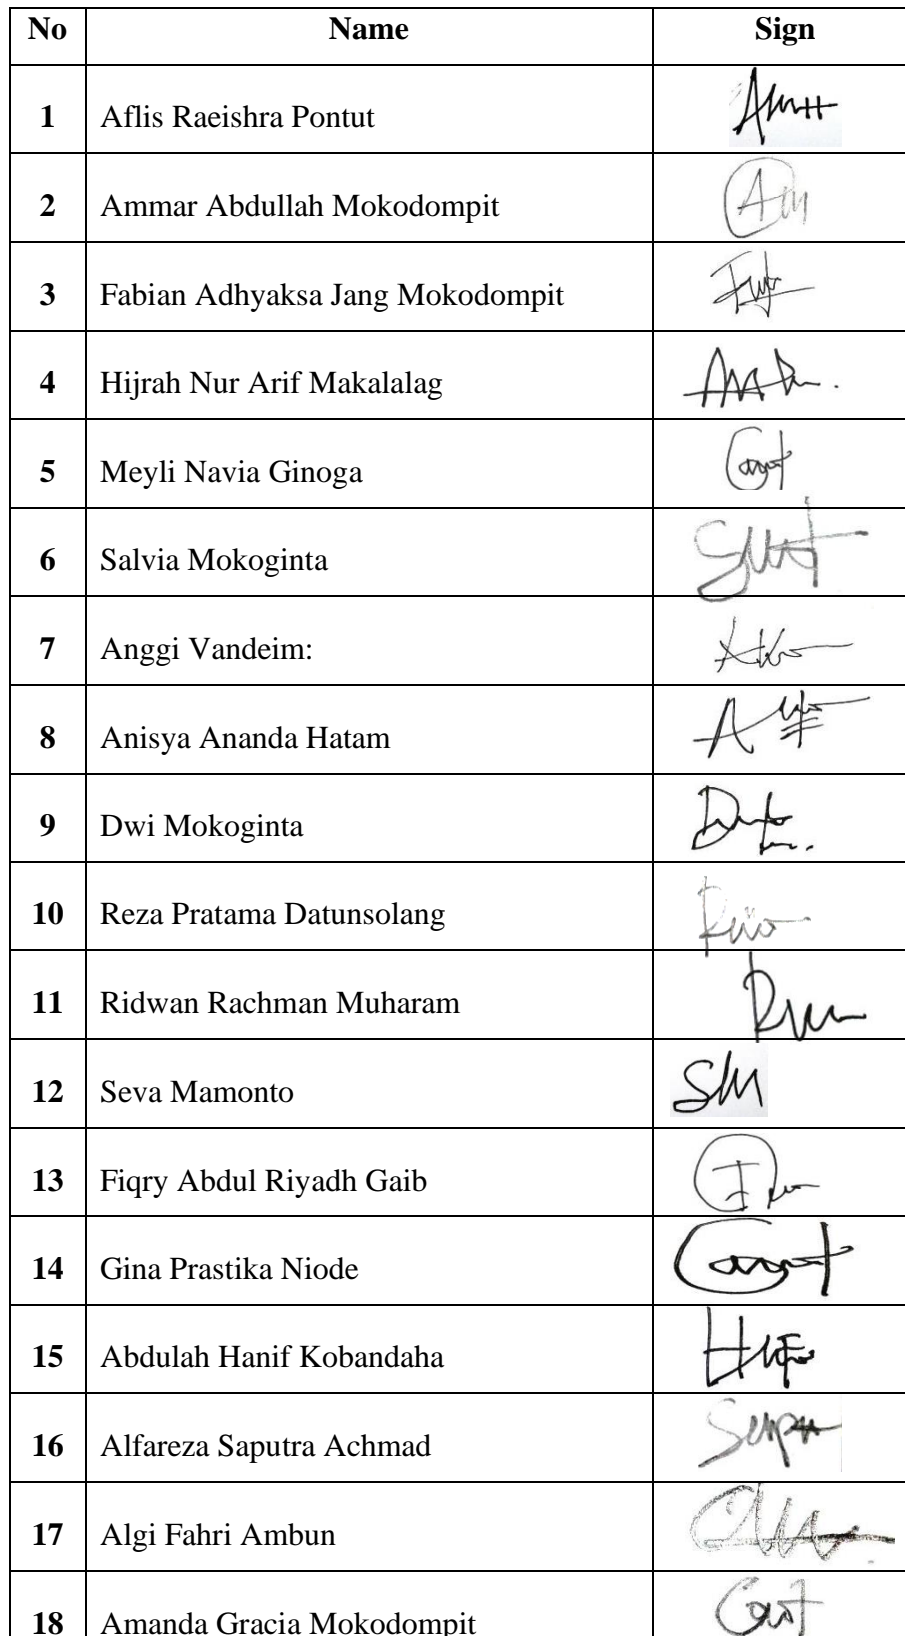 No Name Sign
1 Aflis Raeishra Pontut
2 Ammar Abdullah Mokodompit
3 Fabian Adhyaksa Jang Mokodompit
4 Hijrah Nur Arif Makalalag
5 Meyli Navia Ginoga
6 Salvia Mokoginta
7 Anggi Vandeim:
8 Anisya Ananda Hatam
9 Dwi Mokoginta
10 Reza Pratama Datunsolang
11 Ridwan Rachman Muharam
12 Seva Mamonto
13 Fiqry Abdul Riyadh Gaib
14 Gina Prastika Niode
15 Abdulah Hanif Kobandaha
16 Alfareza Saputra Achmad
17 Algi Fahri Ambun
18 Amanda Gracia Mokodompit